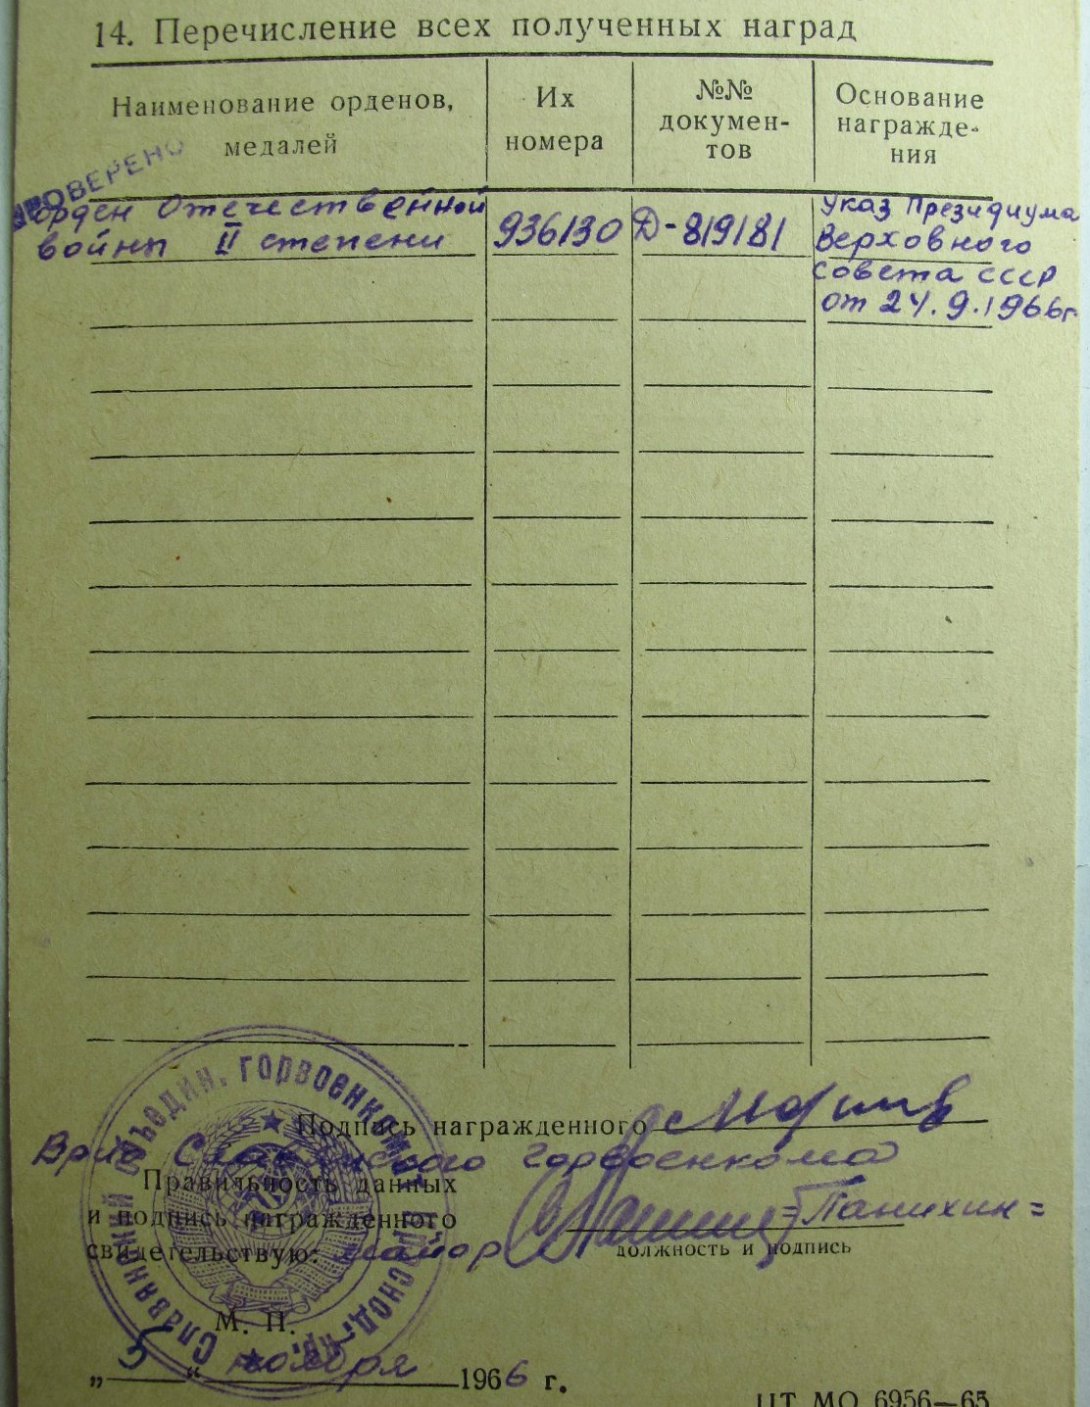 14. Перечисление всех полученных наград
Наименование орденов,
медалей
Их
номера
№№
докумен-
тов
Основание
награжде-
ния
ПРОВЕРЕНО
орден Отечественной
войны II степени
936130
Д-819181
Указ Президиума
Верховного
Совета СССР
от 24.9.1966г.
Подпись награжденного
Врид Славянского горвоенкома
Правильность данных
и подпись награжденного
свидетельствую: майор
=Панихин=
должность и подпись
Славянский объедин. горвоенкомат
М. П.
„5“ ноября 1966 г.
ЦТ МО 6956—65